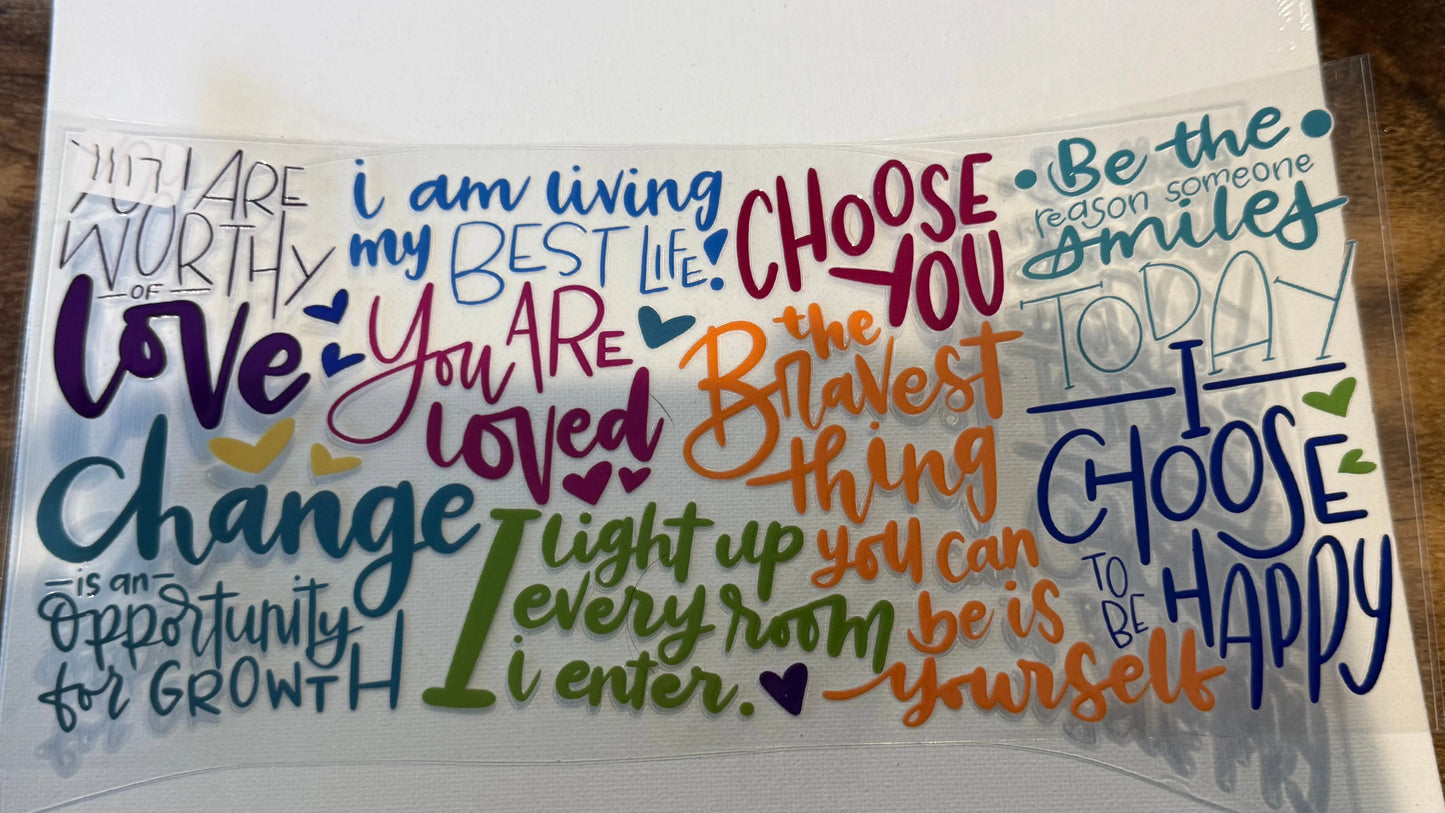 YOU ARE
WORTHY
OF
Love
i am living
my BEST LIFE!
CHOOSE
YOU
Be the
reason someone
smiles
TODAY
You ARE
loved
the
Bravest
thing
you can
be is
yourself
I
CHOOSE
TO
BE
HAPPY
Change
is an
Opportunity
for GROWTH
I light up
every room
i enter.